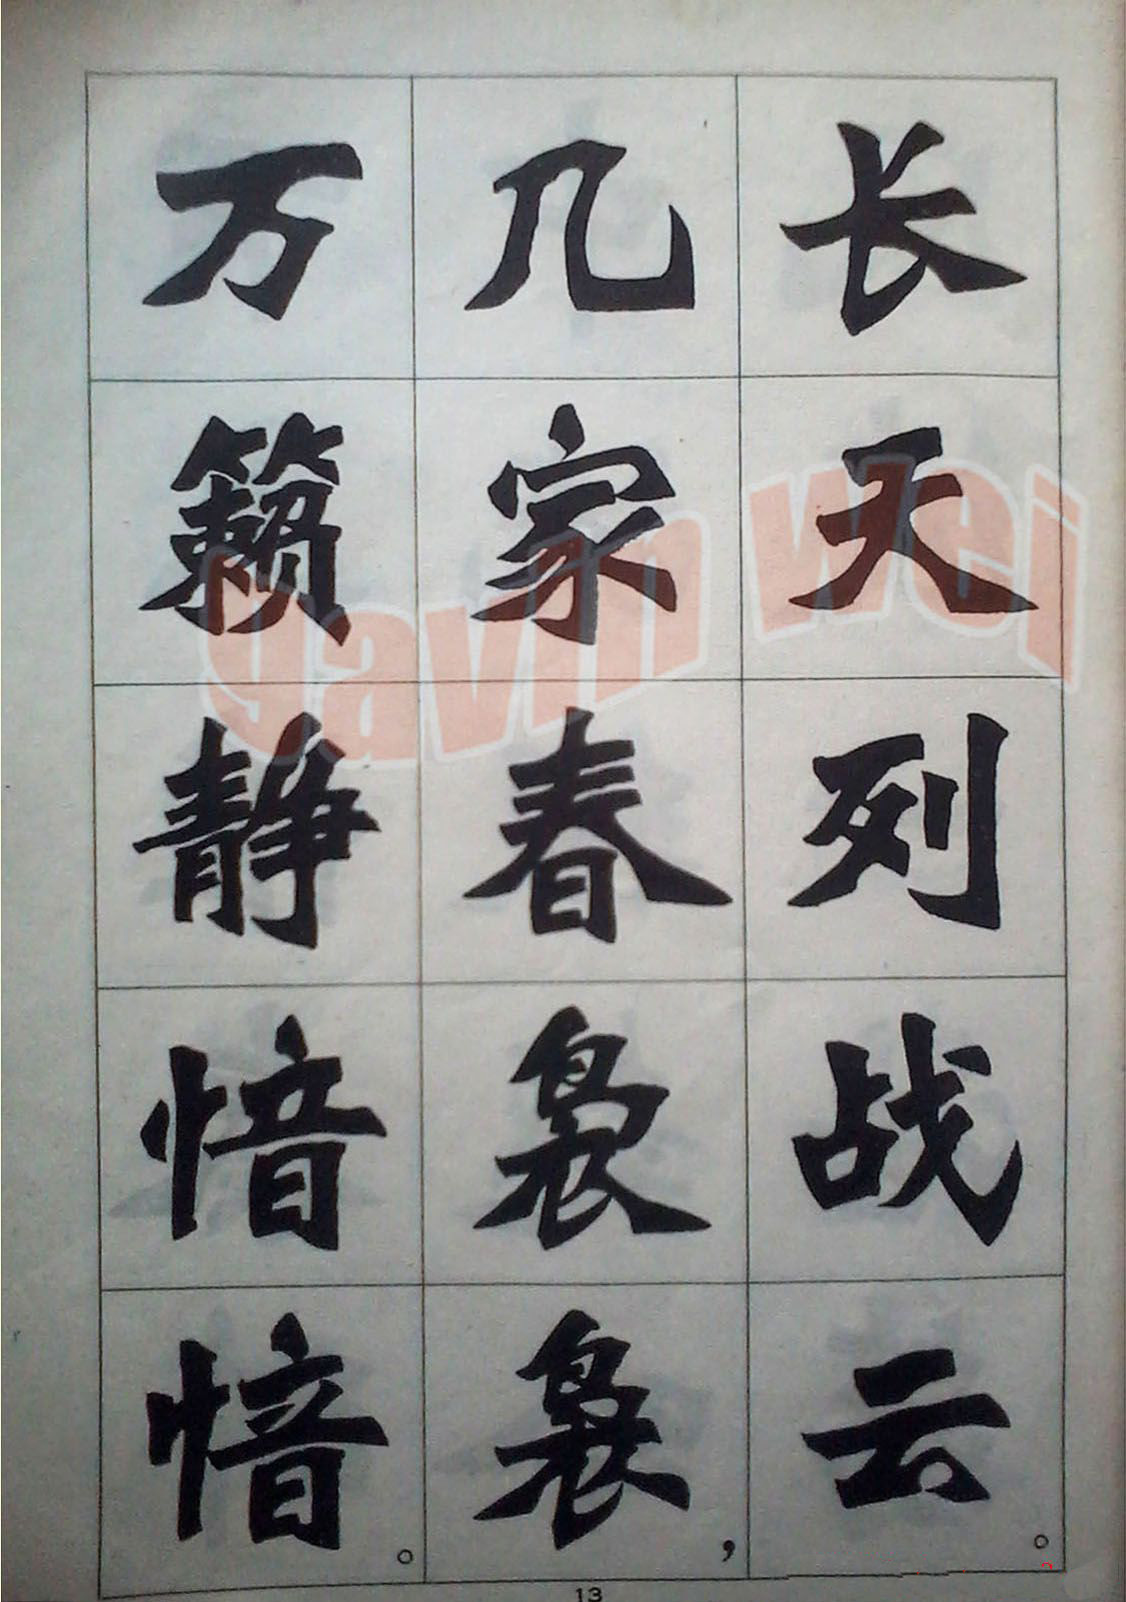 长天列战云。
几家春袅袅,
万籁静愔愔。
gavin wei
13